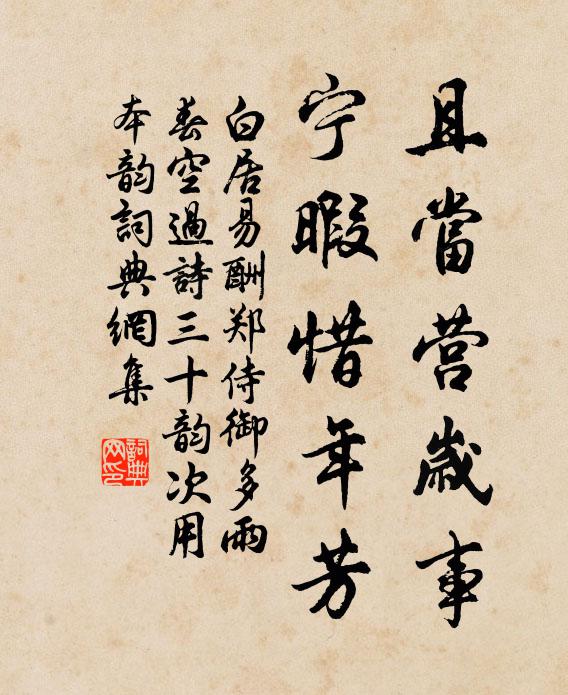 且當营歲事
宁暇惜年芳
白居易酬郑侍御多雨
春空過詩三十韵次用
本韵詞典網集
詞典网印